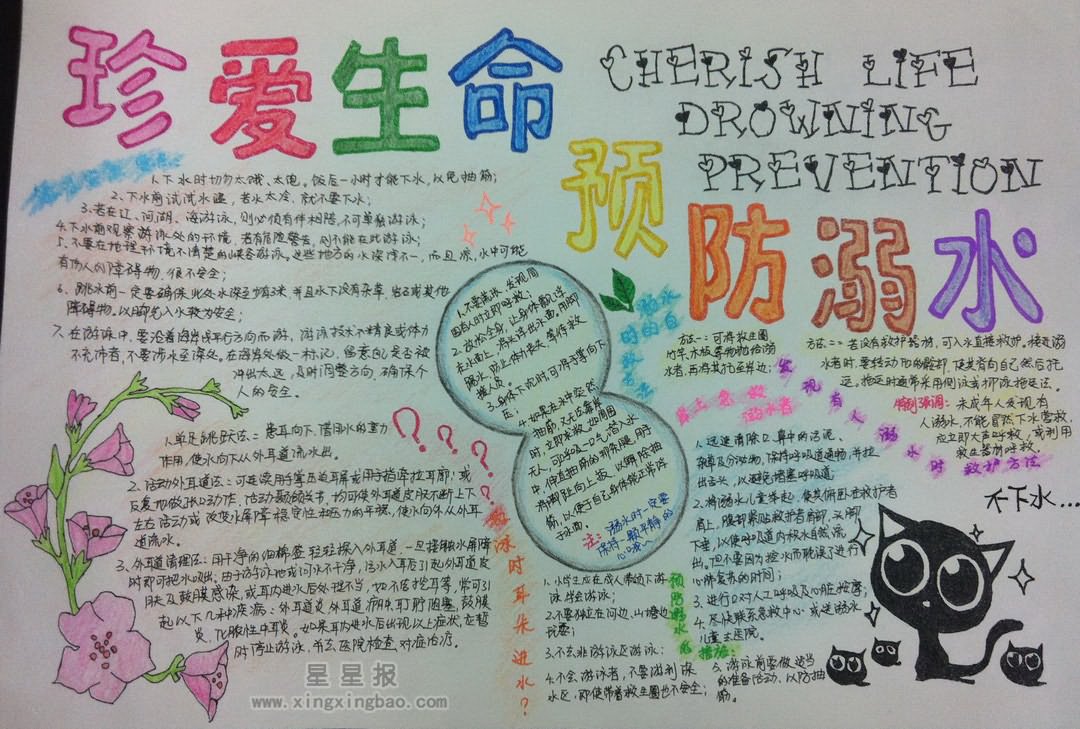 珍爱生命
CHERISH LIFE
DROWNING
PREVENTION
预
防溺水
1.下水时切勿太饿、太饱。饭后一小时才能下水,以免抽筋;
2.下水前试试水温,若水太冷,就不要下水;
3.若在江、河湖、海游泳,则必须有伴相陪,不可单独游泳;
4.下水前观察游泳处的环境,若有危险警告,则不能在此游泳;
5.不要在地理环境不清楚的峡谷游泳。这些地方的水深浅不一,而且凉,水中可能
有伤人的障碍物,很不安全;
6.跳水前一定要确保此处水深至少有3米,并且水下没有杂草、岩石或其他
障碍物。以脚先入水较为安全;
7.在游泳中,要沿着海岸线平行方向而游,游泳技术不精良或体力
不充沛者,不要涉水至深处。在海岸处做一标记,留意自己是否被
冲出太远,及时调整方向,确保个
人的安全。
溺水
时的自
救方法
1.不要慌张,发现周
围有人时立即呼救;
2.放松全身,让身体飘浮
在水面上,将头浮出水面,用脚
踢水,防止体力丧失,等待救
援人员。
3.身体下沉时,可将手掌向下
压;
4.如果在水中突然
抽筋,又无法靠岸
立即求救,如周围
无人,可深吸一口气潜入水
中,伸直抽筋的那条腿,用手
将脚趾向上扳,以解除抽
筋,以便于自己身体能正常浮
于水面。
注:溺水时一定要
保持一颗平静的
心哦~
发现有人溺水时救护方法
方法一:可将救生圈
竹竿、木板等物抛给溺
水者,再将其拖至岸边;
方法二:若没有救护器材,可入水直接救护。接近溺
水者时要转动他的髋部,使其背向自己然后拖
运。拖运时通常采用侧泳或仰泳拖运法。
特别强调:未成年人发现有
人溺水,不能冒然下水营救,
应立即大声呼救,或利用
救生器材呼救。
岸上急救
溺水者
1.迅速清除口、鼻中的污泥、
杂草及分泌物,保持呼吸道通畅,并拉
出舌头,以避免堵塞呼吸道;
2.将溺水儿童举起,使其俯卧在救护者
肩上,腹部紧贴救护者肩部,头脚
下垂,以使呼吸道内积水自然流
出。但不要因为控水而耽误了进行
心肺复苏的时间;
3.进行口对口人工呼吸及心脏按摩;
4.尽快联系急救中心或送溺水
儿童去医院。
不下水...
游泳时耳朵进水?
1.单足跳跃法:患耳向下,借用水的重力
作用,使水向下从外耳道流水出。
2.活动外耳道法:可连续用手掌压迫耳屏或用手指牵拉耳郭;或
反复地做张口动作,活动颞颌关节,均可使外耳道皮肤不断上下
左右活动或改变水屏障稳定性和压力的平衡,使水向外从外耳
道流水。
3.外耳道清理法:用干净的细棉签轻轻探入外耳道,一旦接触水屏障
时即可把水吸出;由于游泳池或河水不干净,污水入耳后引起外耳道皮
肤及鼓膜感染,或耳内进水后处理不当,如不洁挖耳等,常可引
起以下几种疾病:外耳道炎、外耳道疖肿、耵聍阻塞、鼓膜
炎、化脓性中耳炎。如果耳内进水后出现以上症状,应暂
时停止游泳,并去医院检查对症治疗。
预防溺水的措施:
1.小学生应在成人带领下游
泳学会游泳;
2.不要独立在河边、山塘边
玩耍;
3.不去非游泳区游泳;
4.不会游泳者,不要游到深
水区,即使带着救生圈也不安全;
5.游泳前要做适当
的准备活动,以防抽
筋。
星星报
www.xingxingbao.com